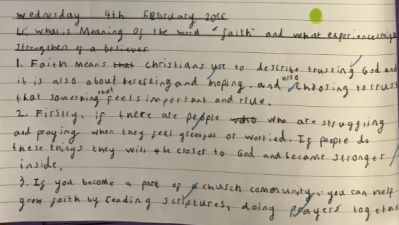 Wednesday 4th February 2026
LC what is Meaning of the word "faith" and what experiences might
strengthen of a believer
1. Faith means that christians use to describe trusting God and
it is also about believing and hoping. and also choosing to trust
that something that feels important and true.
2. Firstly, if there are people who who are struggling
and praying when they feel or worried. If people do
these things they will be closer to God and become stronger
inside.
3. If you become a part of a church community, you can help
grow faith by reading scriptures, doing prayers together